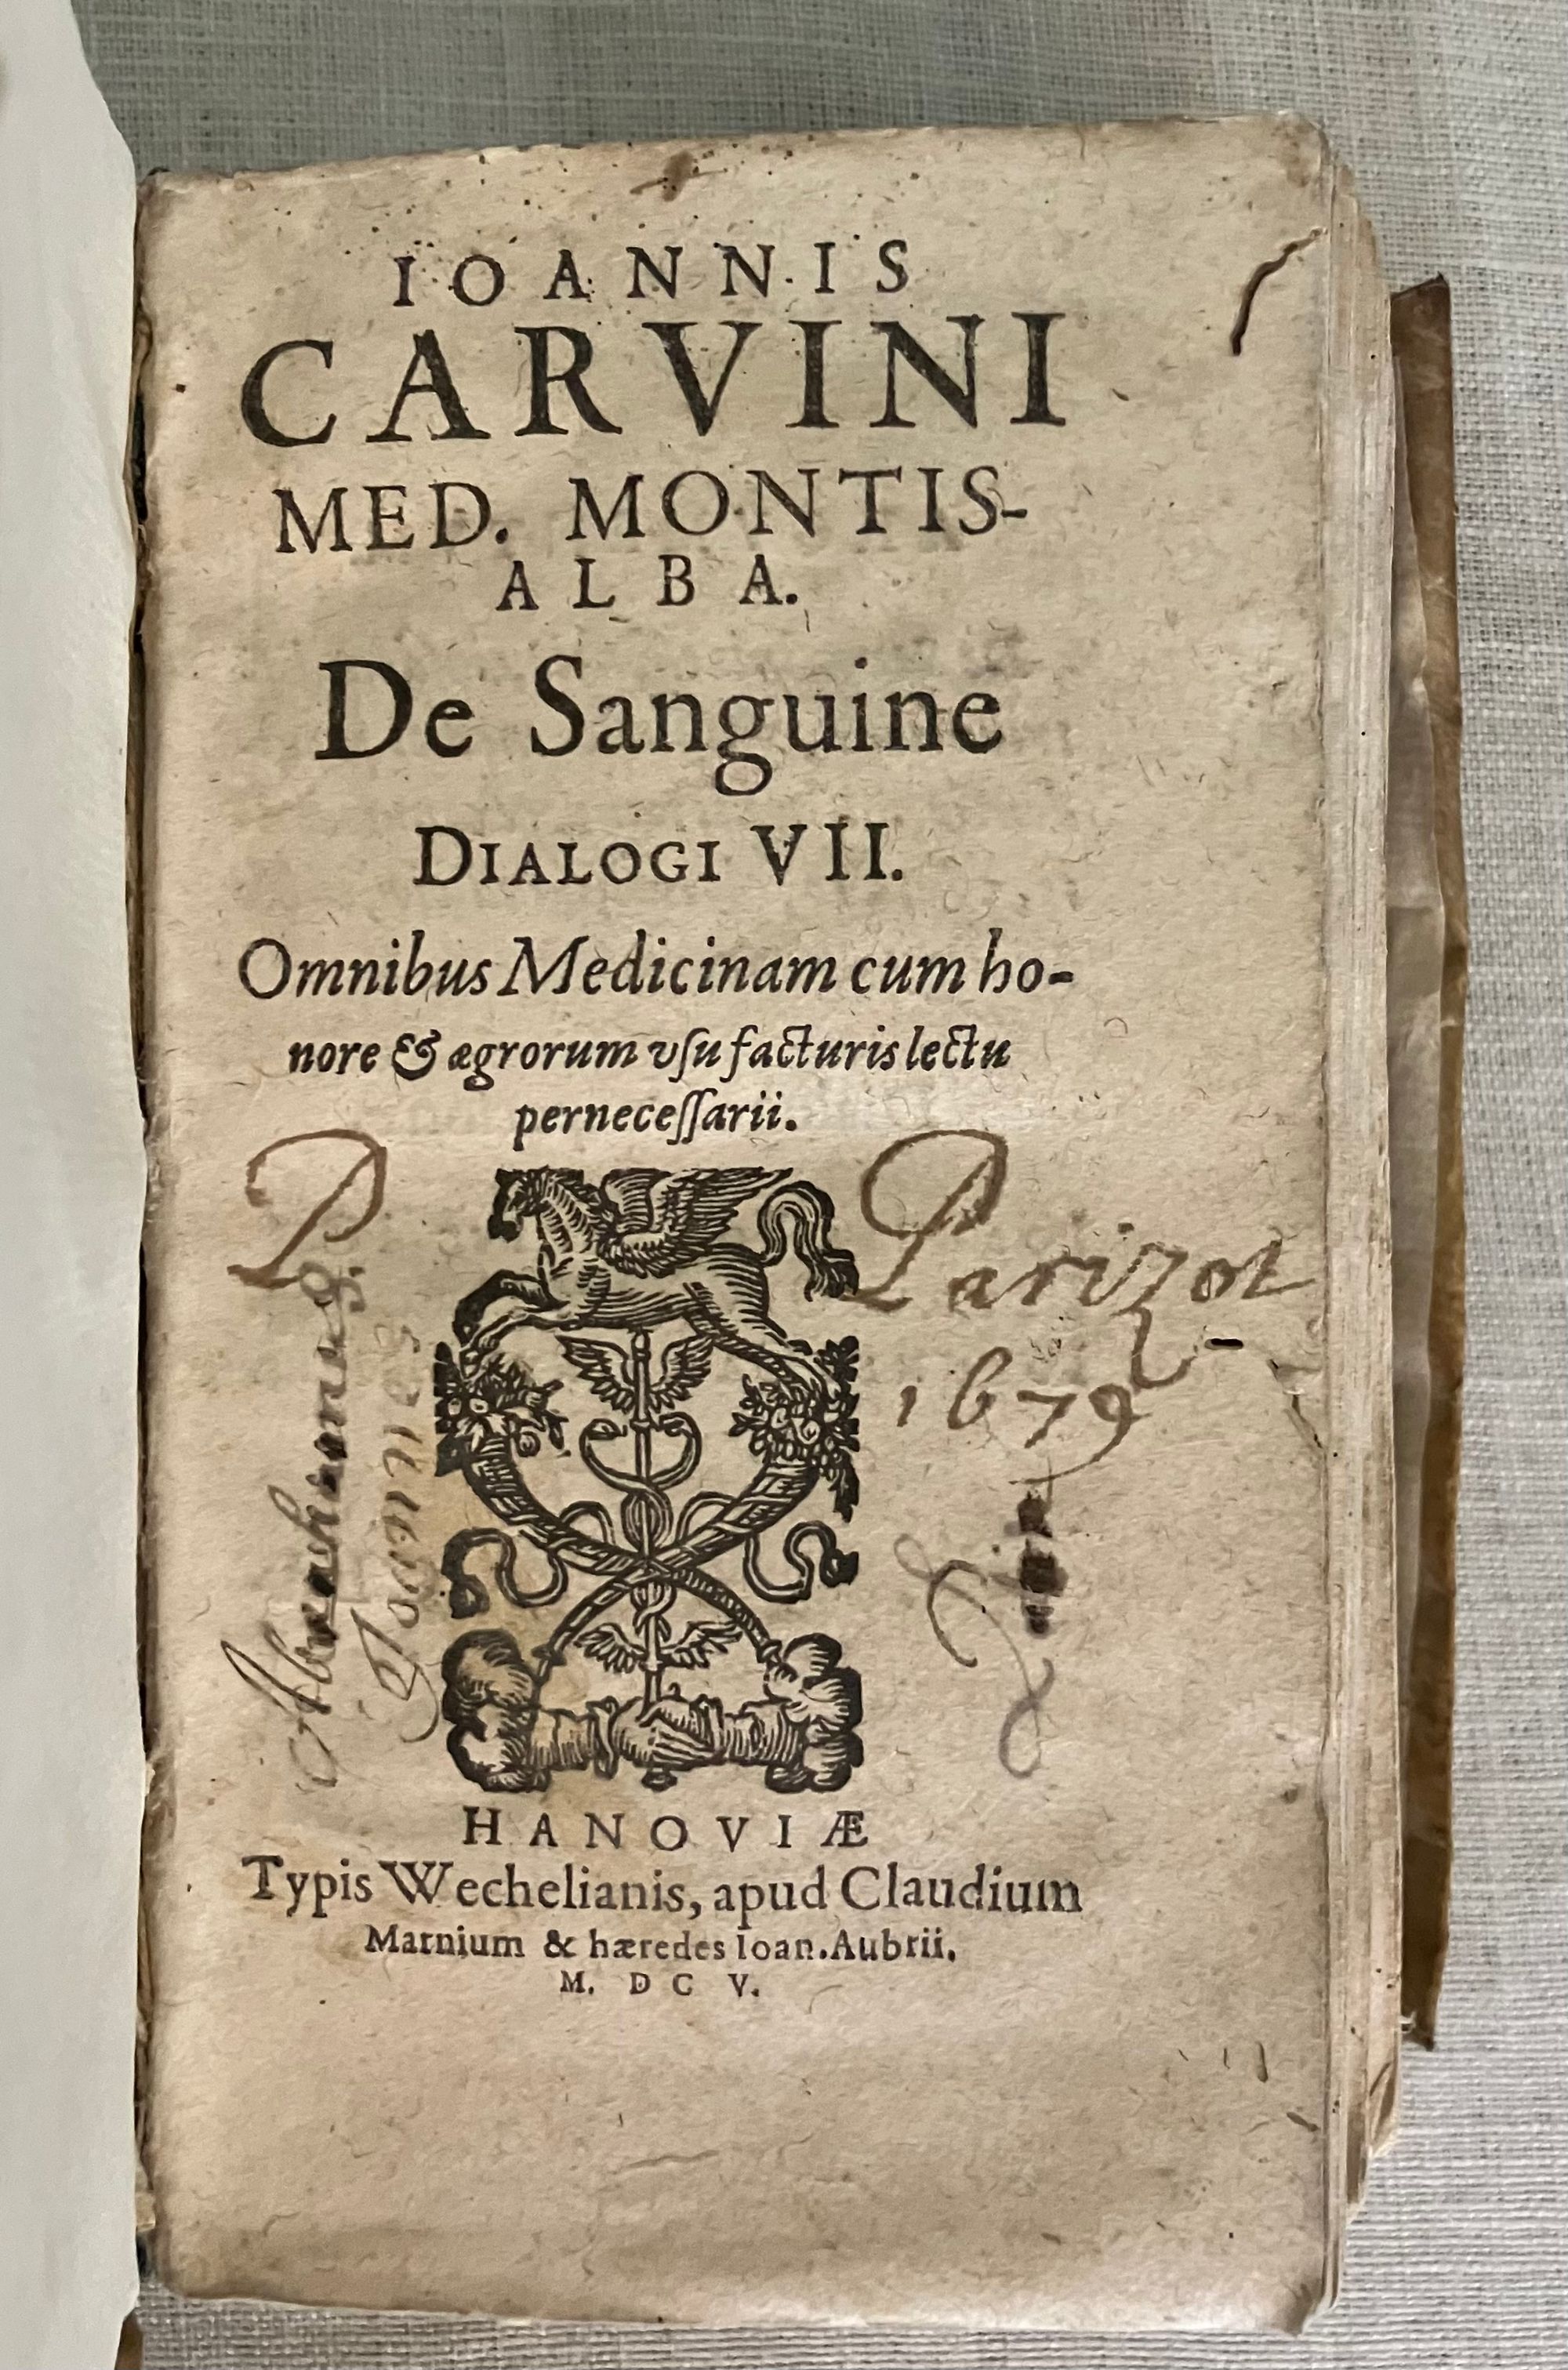 IOANNIS
CARVINI
MED. MONTIS-
ALBA.
De Sanguine
DIALOGI VII.
Omnibus Medicinam cum ho-
nore & ægrorum vſu facturis lectu
perneceſſarii.
P Parizot
1679
HANOVIÆ
Typis Wechelianis, apud Claudium
Marnium & hæredes Ioan. Aubrii.
M. D C V.